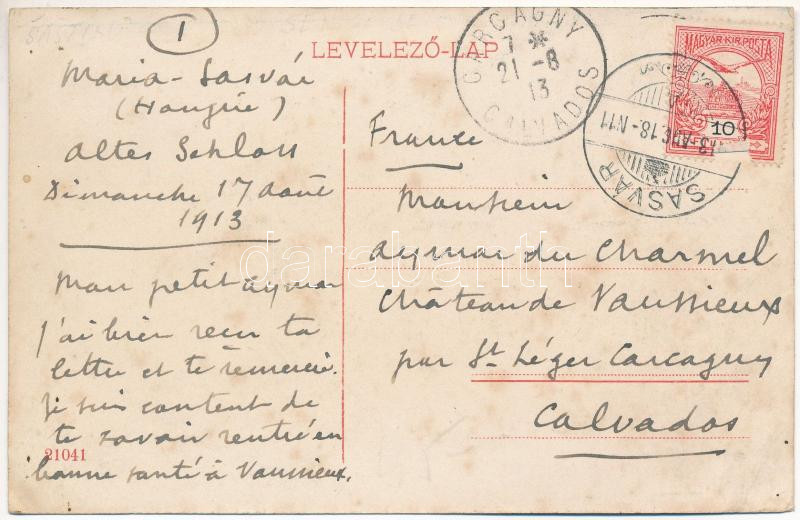 1
LEVELEZŐ-LAP
Maria-Sasvár
(Hongrie)
Altes Schloss
Dimanche 17 août
1913
Mon petit Aymar
j'ai bien reçu ta
lettre et te remercie.
je suis content de
te savoir rentré en
bonne santé à Vaussieux.
21041
CARCAGNY
7 *
21 - 8
13
CALVADOS
MAGYAR KIR. POSTA
10
SASVÁR
13 AUG. 18.-N11
France
Monsieur
Aymar du Charmel
Château de Vaussieux
par St Léger Carcagny
Calvados
darabanth